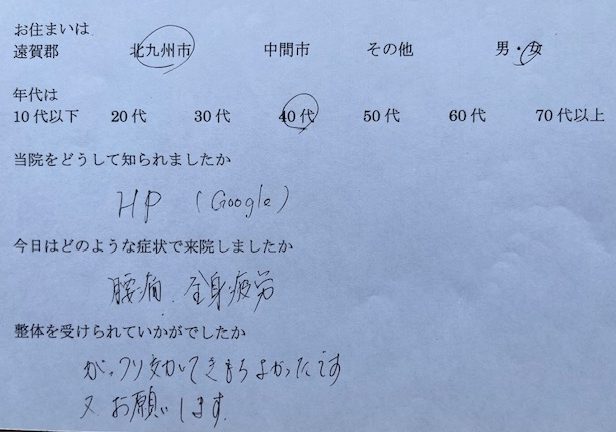 お住まいは
遠賀郡 北九州市 中間市 その他 男・女
年代は
10代以下 20代 30代 40代 50代 60代 70代以上
当院をどうして知られましたか
HP (Google)
今日はどのような症状で来院しましたか
腰痛、全身疲労
整体を受けられていかがでしたか
がっつり効いてきもちよかったです
又お願いします。